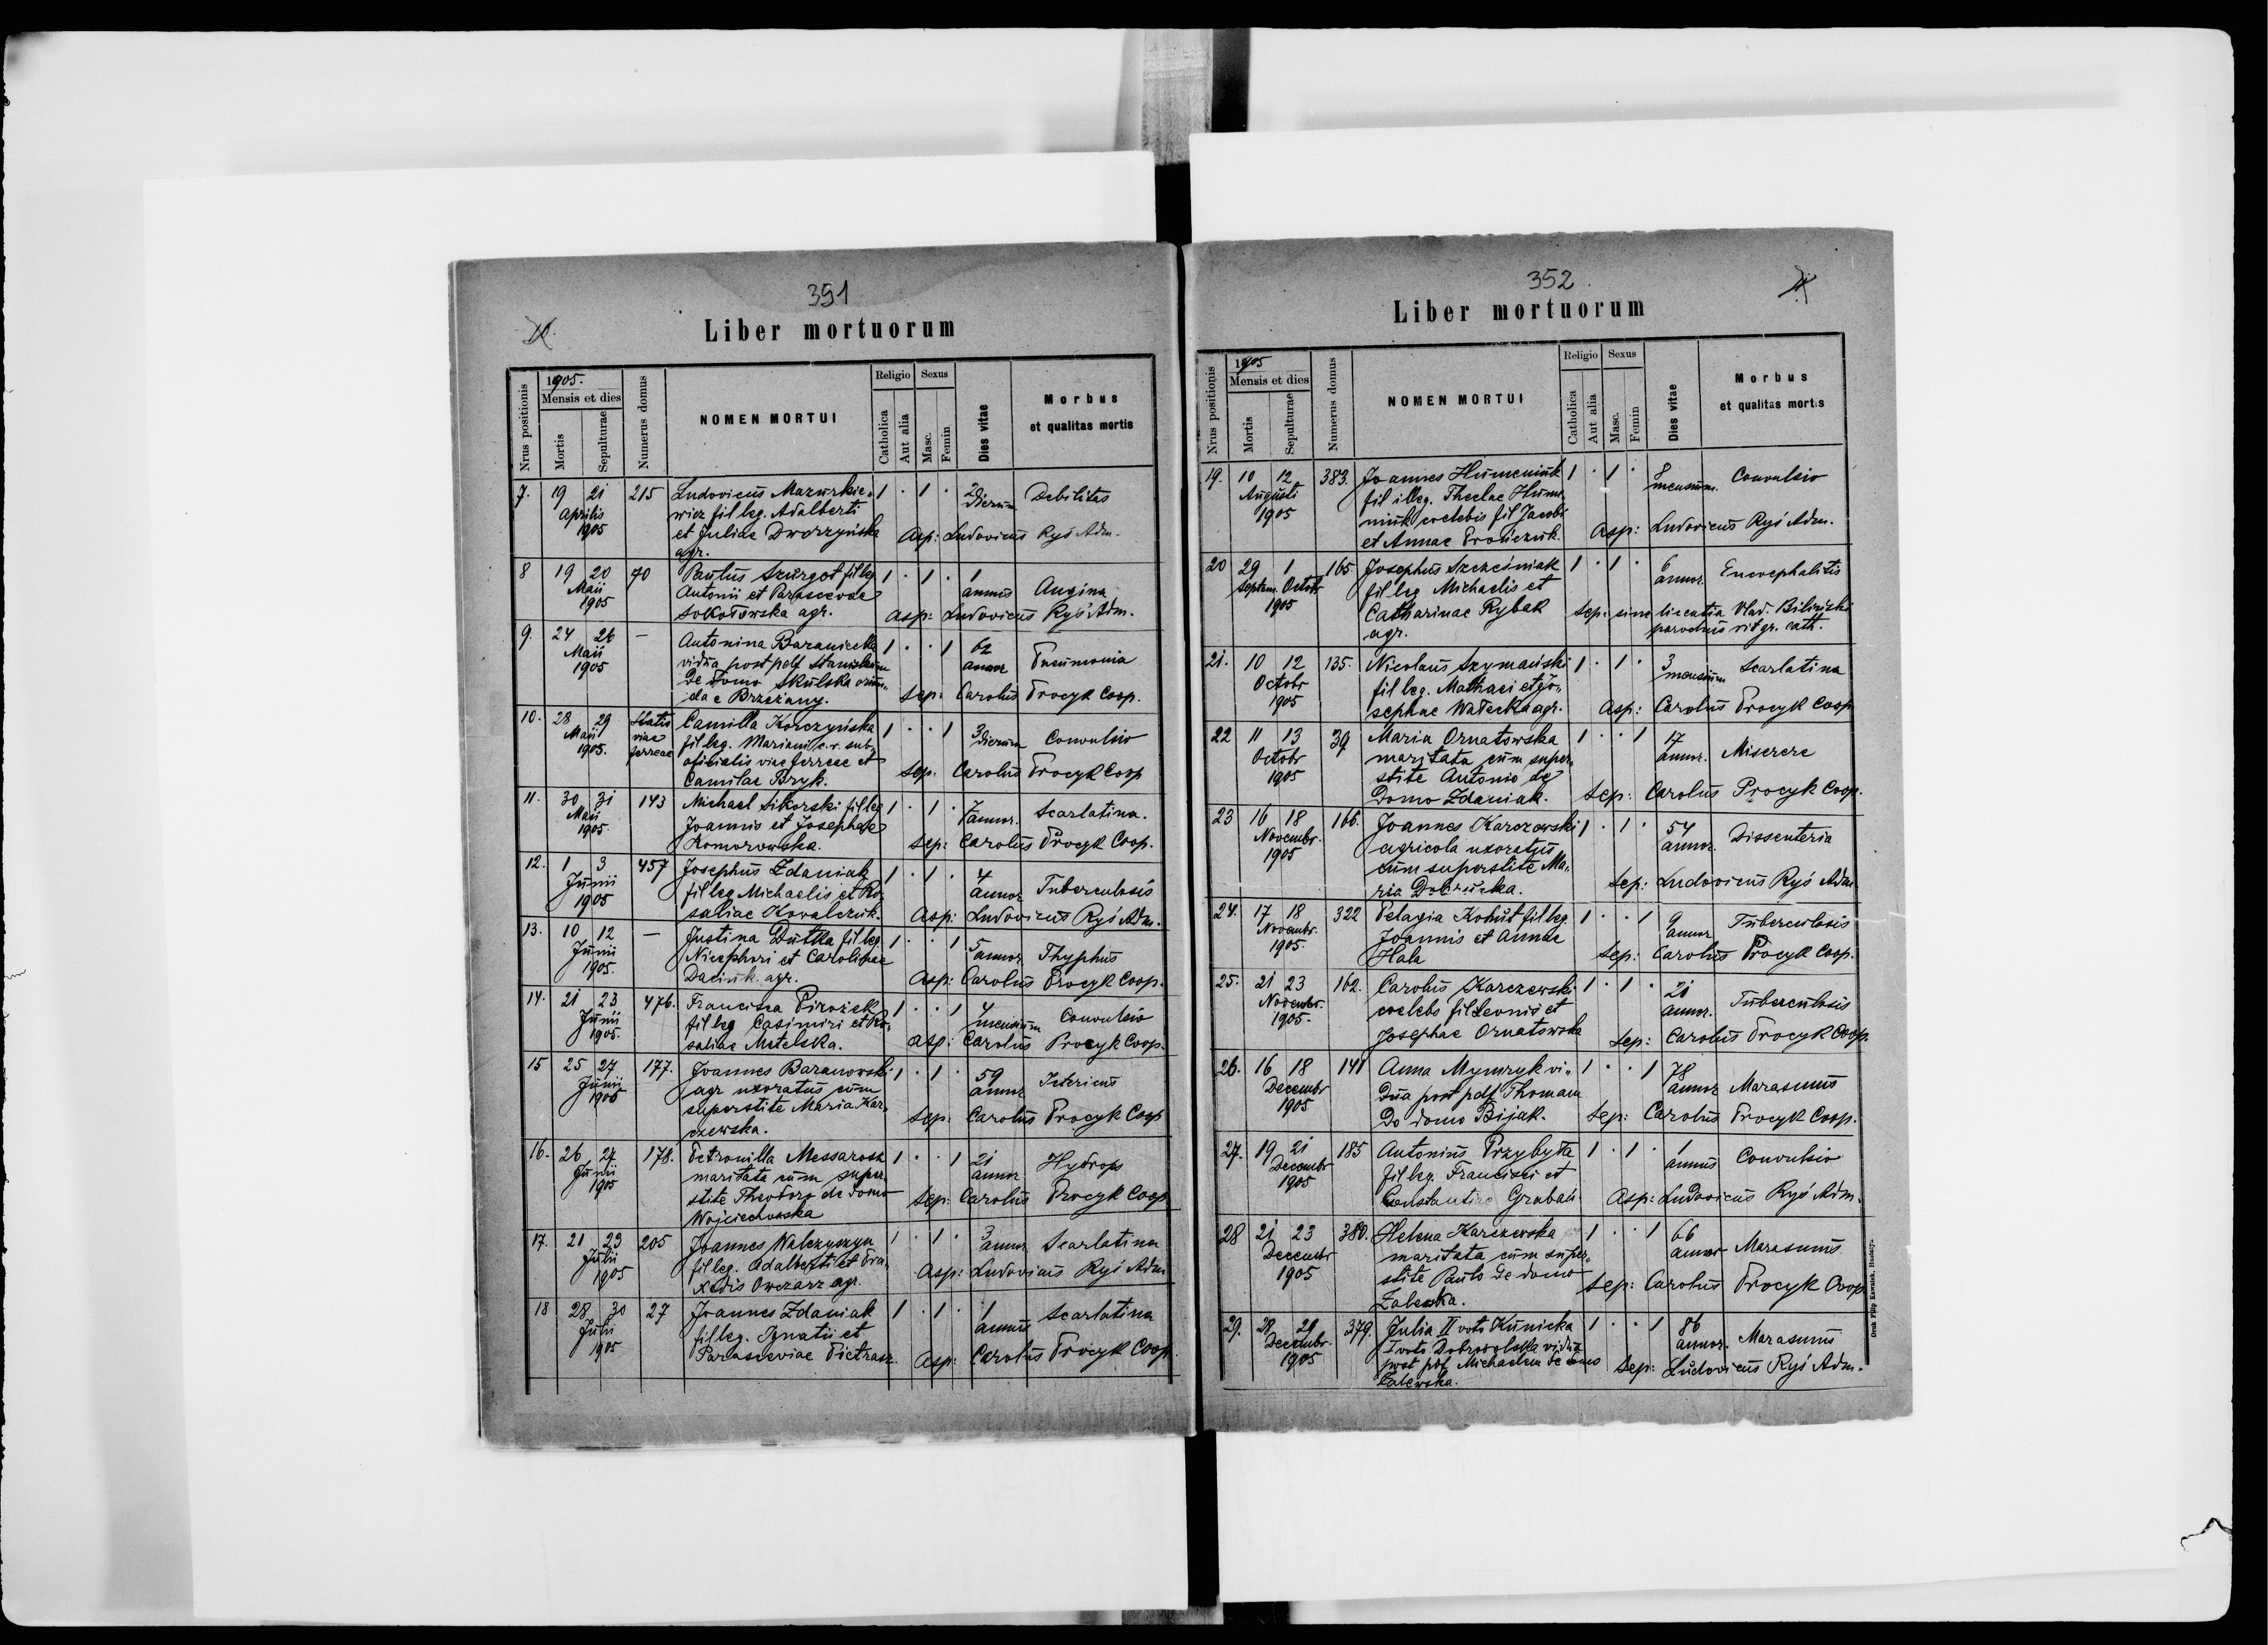 391
10.
Liber mortuorum
Nrus positionis
1905.
Mensis et dies
Mortis
Sepulturae
Numerus domus
NOMEN MORTUI
Religio
Catholica
Aut alia
Sexus
Masc.
Femin
Dies vitae
Morbus
et qualitas mortis
7. 19 21 215 Ludovicus Mazurkie„ 1 · 1 · 2 Debilitas
Aprilis wicz fil leg. Adalberti dierum
1905 et Juliae Dworzyńska Asp: Ludovicus Ryś Adm.
agr.
8 19 20 40 Paulus Szurgot fil leg 1 · 1 · 1 Angina
Maii Antonii et Parascevae annus
1905 Sokołowska agr. Asp: Ludovicus Ryś Adm.
9. 24 26 — Antonina Baraniecka 1 · · 1 62 Pneumonia
Maii vidua post pdf Stanislaum annor
1905 de domo Skulska oriun„
da e Brzeżany. Sep: Carolus Procyk Coop.
10. 28 29 Statio Camilla Korczyńska 1 · · 1 3 Convulsio
Maii viae fil leg. Mariani c. r. sub„ dierum
1905. ferreae oficialis viae ferreae et
Camilae Bryk. Sep: Carolus Procyk Coop
11. 30 31 143 Michael Sikorski fil leg 1 · 1 · 7 Scarlatina.
Maii Joannis et Josephae annor.
1905. Komorowska. Sep: Carolus Procyk Coop.
12. 1 3 457 Josephus Zdaniak 1 · 1 · 4 Tuberculosis
Junii fil leg Michaelis et Ro„ annor
1905 saliae Kovalczuk. Asp: Ludovicus Ryś Adm.
13. 10 12 — Justina Dutka fil leg. 1 · · 1 5 Thyphus
Junii Nicephori et Carolinae annor
1905. Daciuk agr. Asp: Carolus Procyk Coop.
14. 21 23 476. Francisca Pirożek 1 · · 1 4 Convulsio
Junii fil leg Casimiri et Ro„ mensium
1905. saliae Metelska. Asp: Carolus Procyk Coop.
15 25 27 177. Joannes Baranowski 1 · 1 · 59 Ictericus
Junii agr uxoratus cum annor
1905 superstite Maria Kar„ Sep: Carolus Procyk Coop
czewska.
16. 26 27 178. Petronilla Messarosz 1 · · 1 21 Hydrops
Junii maritata cum super„ annor
1905 stite Theodoro de domo Sep: Carolus Procyk Coop
Wojciechowska
17. 21 23 205 Joannes Walczyszyn 1 · 1 · 3 Scarlatina
Julii fil leg. Adalberti et Pra„ annor
1905 xedis Owczarz agr. Asp: Ludovicus Ryś Adm
18 28 30 27 Joannes Zdaniak 1 · 1 · 1 Scarlatina
Julii fil leg. Ignatii et annus
1905 Parasceviae Pietrasz. Asp: Carolus Procyk Coop.
352
Liber mortuorum
Nrus positionis
1905
Mensis et dies
Mortis
Sepulturae
Numerus domus
NOMEN MORTUI
Religio
Catholica
Aut alia
Sexus
Masc.
Femin
Dies vitae
Morbus
et qualitas mortis
19. 10 12 383. Joannes Humeniuk 1 · 1 · 8 Convulsio
Augusti fil illeg. Theclae Hume„ mensium.
1905 niuk coelebis fil Jacobi
et Annae Prończuk. Asp: Ludovicus Ryś Adm.
20 29 1 165 Josephus Szcześniak 1 · 1 · 6 Encephalitis
Septem. Octobr fil leg Michaelis et annor.
1905 Catharinae Rybak Sep: sine licentia Vlad. Biliński
agr. parochus rit gr. cath.
21. 10 12 135. Nicolaus Szymański 1 · 1 · 3 Scarlatina
Octobr fil leg. Mathaei et Jo„ mensium
1905 sephae Watecka agr. Asp: Carolus Procyk Coop
22 11 13 39 Maria Ornatowska 1 · · 1 17 Miserere
Octobr maritata cum super„ annor.
1905 stite Antonio de
Domo Zdaniak. Sep: Carolus Procyk Coop.
23 16 18 166. Joannes Karczewski 1 · 1 · 54 Dissenteria
Novembr. agricola uxoratus annor.
1905 cum superstite Ma„
ria Dobrucka. Sep: Ludovicus Ryś Adm
24. 17 18 322 Pelagia Kohut fil leg. 1 · · 1 9 Tuberculosis
Novembr. Joannis et Annae annor
1905. Hala Sep: Carolus Procyk Coop.
25. 21 23 162. Carolus Karczewski 1 · 1 · 21 Tuberculosis
Novembr. coelebs fil Leonis et annor.
1905. Josephae Ornatowska Sep: Carolus Procyk Coop.
26. 16 18 141 Anna Mymryk vi„ 1 · · 1 78 Marasmus
Decembr dua post pdf Thomam annor
1905 De domo Bijak. Sep: Carolus Procyk Coop.
27. 19 21 185 Antonius Przybyła 1 · 1 · 1 Convulsio
Decembr fil leg. Francisci et annus
1905 Constantiae Grabań. Asp: Ludovicus Ryś Adm.
28 21 23 380. Helena Karczewska 1 · · 1 66 Marasmus
Decembr maritata cum super„ annor
1905 stite Paulo de domo Sep: Carolus Procyk Coop
Zalewska.
29. 28 29 379. Julia II voto Kunicka 1 · · 1 86 Marasmus
Decembr. I voto Dobrowolska vidua annor.
1905 post pdf Michaelem de domo Sep: Ludovicus Ryś Adm.
Zalewska.
Druk Filip Kawalek, Husiatyn.